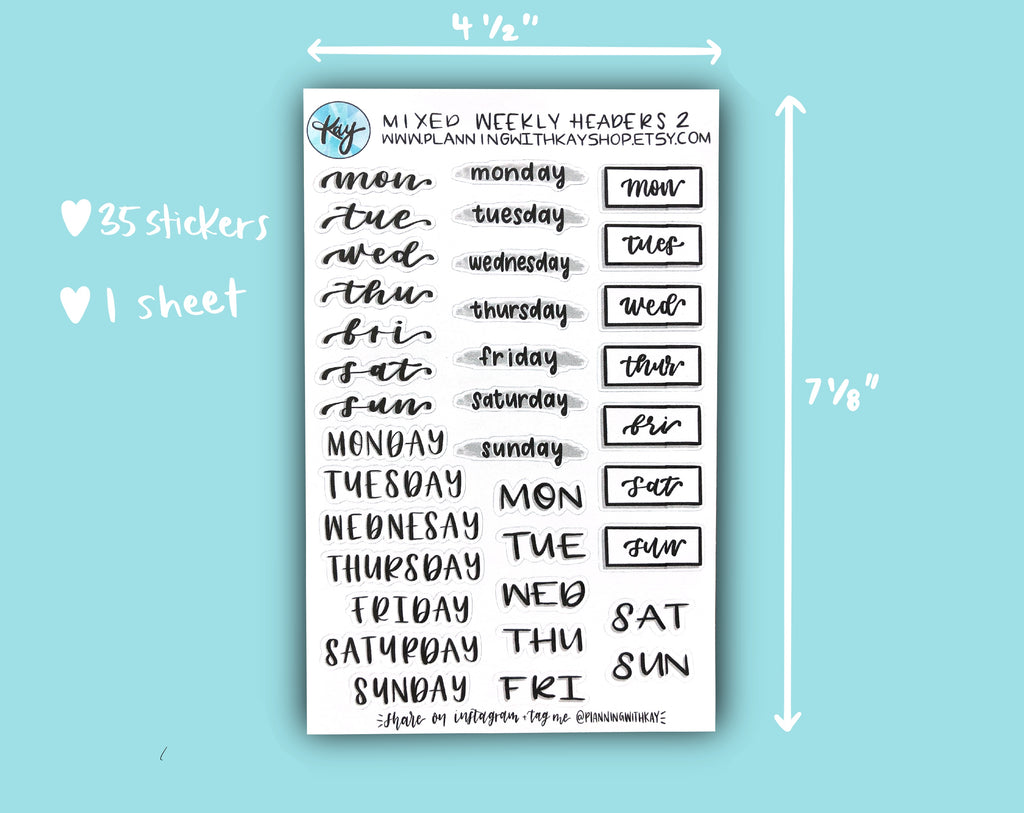 4 ½"
Kay
MIXED WEEKLY HEADERS 2
WWW.PLANNINGWITHKAYSHOP.ETSY.COM
♥ 35 stickers
♥ 1 sheet
7 ⅛"
mon
tue
wed
thu
fri
sat
sun
MONDAY
TUESDAY
WEDNESAY
THURSDAY
FRIDAY
SATURDAY
SUNDAY
monday
tuesday
wednesday
thursday
friday
saturday
sunday
MON
TUE
WED
THU
FRI
mon
tues
wed
thur
fri
sat
sun
SAT
SUN
share on instagram + tag me @PLANNINGWITHKAY